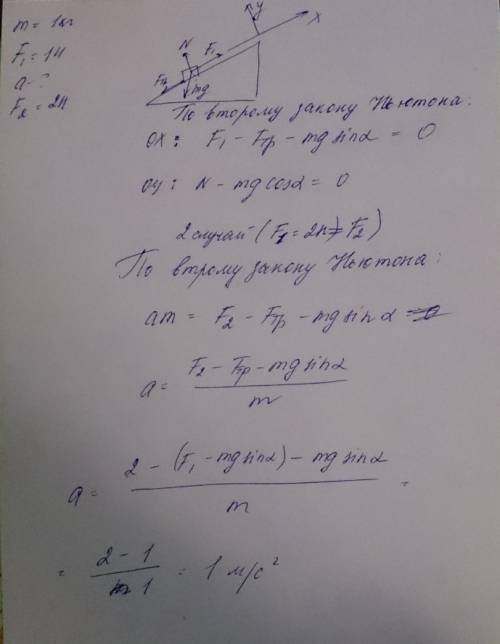 m = 1кг
F₁ = 1Н
a - ?
F₂ = 2Н
y
X
N
F₁
Fтр
mg
По второму закону Ньютона:
OX: F₁ - Fтр - mg sinα = 0
OY: N - mg cosα = 0
2 случай (F₁ = 2Н = F₂)
По втрому закону Ньютона:
am = F₂ - Fтр - mg sinα
a = (F₂ - Fтр - mg sinα) / m
a = (2 - (F₁ - mg sinα) - mg sinα) / m =
= (2 - 1) / 1 = 1 м/с²